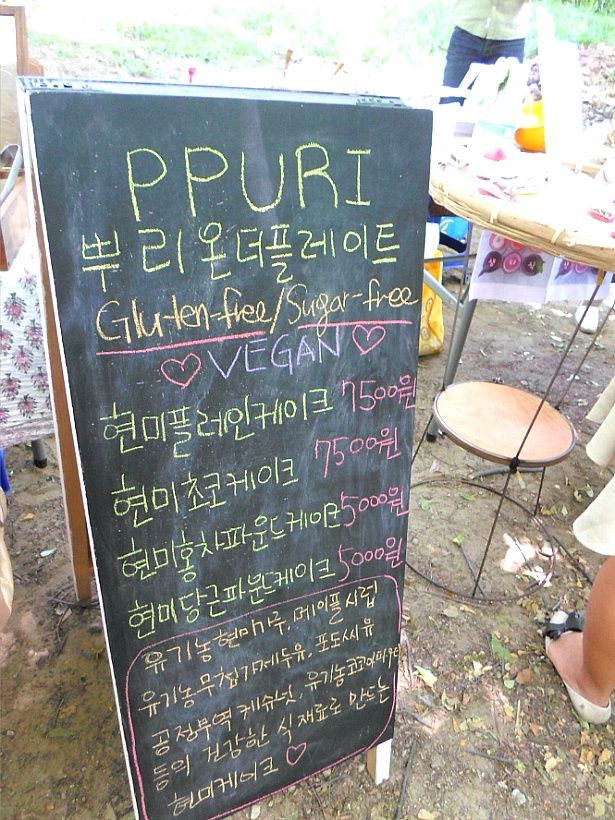 PPURI
뿌리온더플레이트
Gluten-free/Sugar-free
♡ VEGAN ♡
현미플레인케이크 7500원
현미초코케이크 7500원
현미홍차파운드케이크 5000원
현미당근파운드케이크 5000원
유기농현미가루, 메이플시럽
유기농무첨가제두유, 포도씨유
공정무역 캐슈넛, 유기농코코아파우더
등의 건강한 식재료로 만드는
현미케이크 ♡